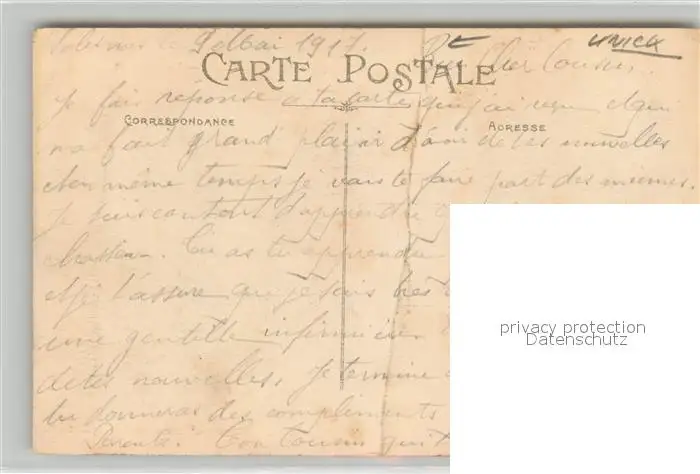 9 Mai 1917.
UNICK
Cher Cousin.
CARTE POSTALE
Je fais reponse a ta carte que j'ai reçu et qui
CORRESPONDANCE
ADRESSE
m'a fait grand plaisir d'avoir de tes nouvelles
et en même temps je vais te faire part des miennes.
Je suis content d'apprendre
Tu as
et je t'assure que je suis très
une gentille infirmière
de tes nouvelles. Je termine
tu donneras des compliments
Ton cousin qui
privacy protection
Datenschutz